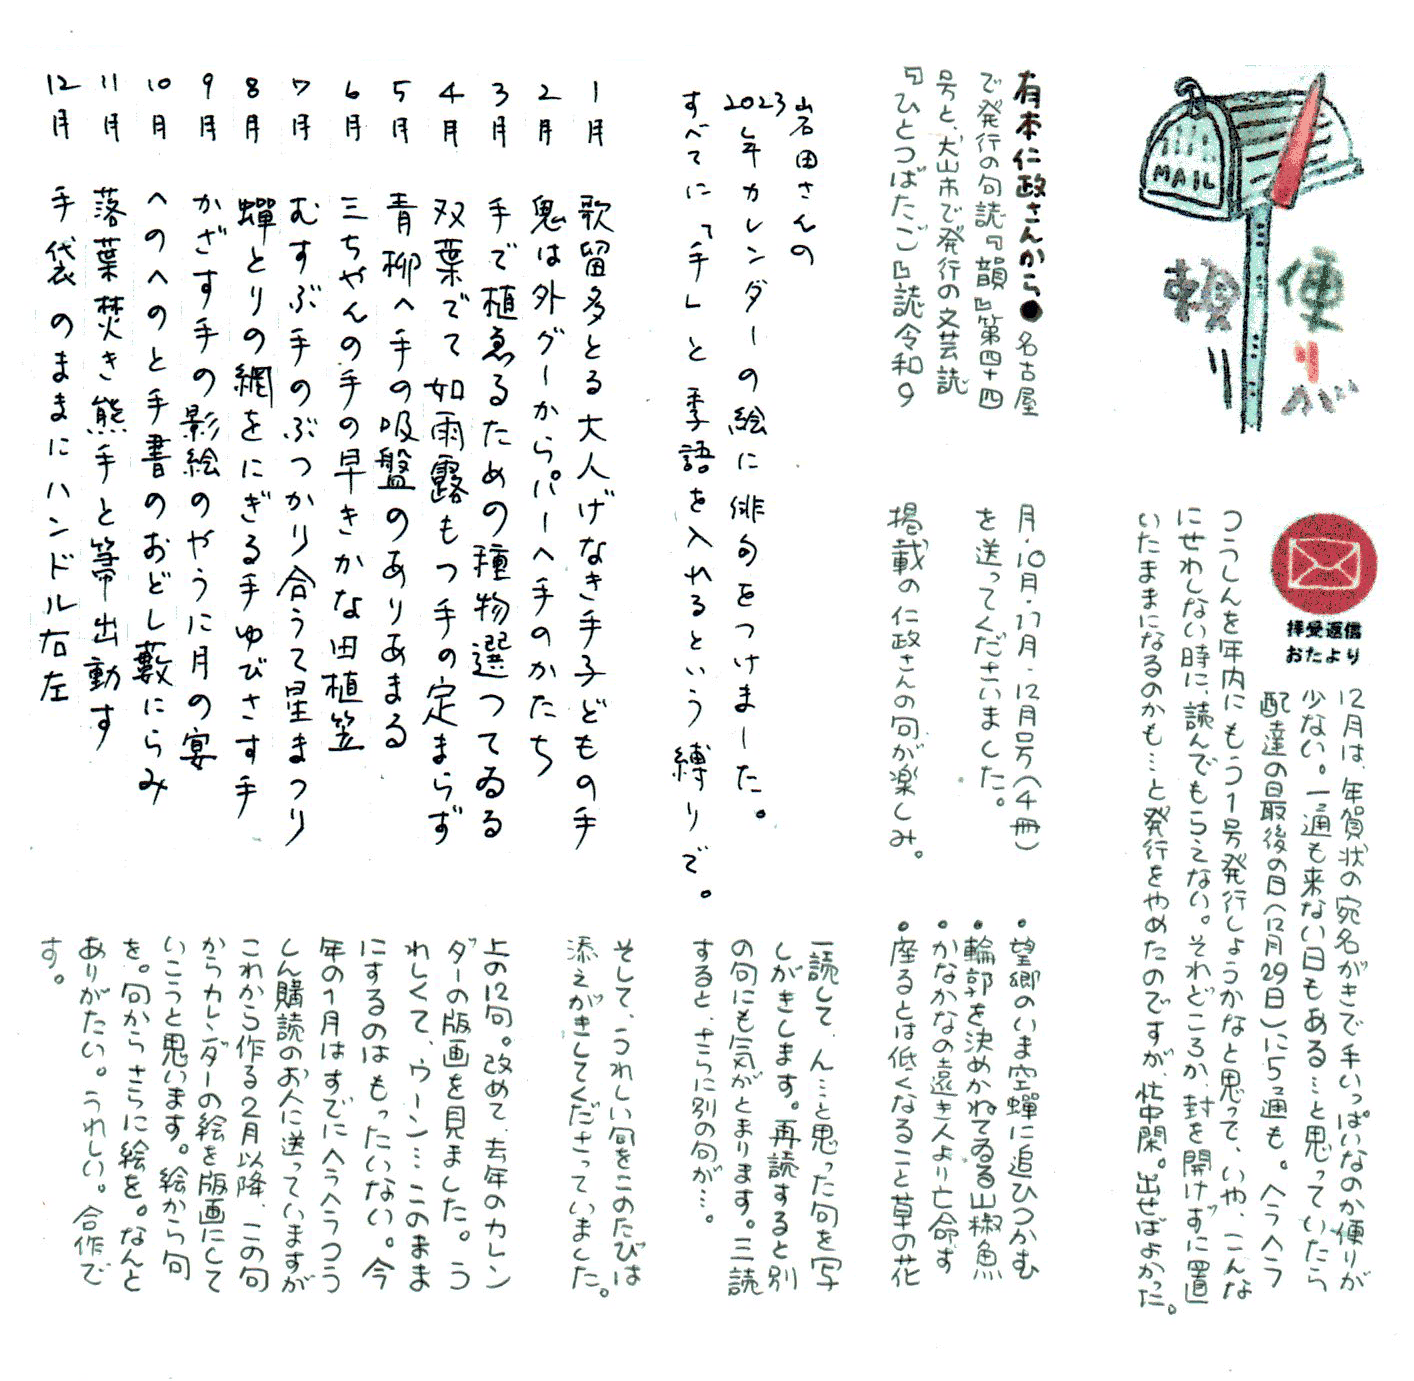 MAIL
便りが
頼り
拝受返信
おたより
12月は、年賀状の宛名がきで手いっぱいなのか便りが
少ない。一通も来ない日もある…と思っていたら
配達の日最後の日(12月29日)に5通も。ヘラヘラ
つうしんを年内にもう1号発行しようかなと思って、いや、こんな
にせわしない時に、読んでもらえない。それどころか、封を開けずに置
いたままになるのかも…と発行をやめたのですが、忙中閑。出せばよかった。
有本仁政さんから●名古屋
で発行の句誌『韻』第四十四
号と、犬山市で発行の文芸誌
『ひとつばたご』誌令和9
月・10月・11月・12月号(4冊)
を送ってくださいました。
掲載の仁政さんの句が楽しみ。
・望郷のいま空蟬に追ひつかむ
・輪郭を決めかねてゐる山椒魚
・かなかなの遠き人より亡命す
・座るとは低くなること草の花
一読して、ん…と思った句を写
しがきします。再読すると別
の句にも気がとまります。三読
すると、さらに別の句が…。
岩田さんの
2023年カレンダーの絵に俳句をつけました。
すべてに「手」と季語を入れるという縛りで。
そして、うれしい句をこのたびは
添えがきしてくださっていました。
1月 歌留多とる大人げなき手子どもの手
2月 鬼は外グーからパーへ手のかたち
3月 手で植ゑるための種物選つてゐる
4月 双葉でて如雨露もつ手の定まらず
5月 青柳へ手の吸盤のありあまる
6月 三ちやんの手の早きかな田植笠
7月 むすぶ手のぶつかり合うて星まつり
8月 蟬とりの網をにぎる手ゆびさす手
9月 かざす手の影絵のやうに月の宴
10月 へのへのと手書のおどし藪にらみ
11月 落葉焚き熊手と箒出動す
12月 手袋のままにハンドル右左
上の12句。改めて、去年のカレン
ダーの版画を見ました。う
れしくて、ウーン…このまま
にするのはもったいない。今
年の1月はすでにヘラヘラつう
しん購読のお人に送っていますが
これから作る2月以降、この句
からカレンダーの絵を版画にして
いこうと思います。絵から句
を。句からさらに絵を。なんと
ありがたい。うれしい。合作で
す。